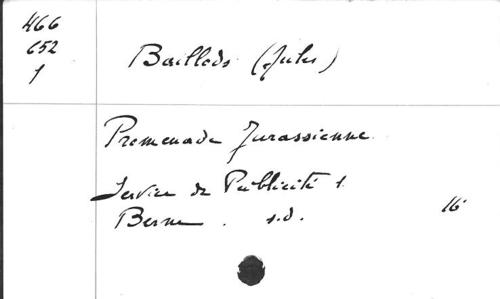 466
652
1
Baillods (Jules)
Promenade Jurassienne.
Service de Publicité s.
Berne . s.d. 16°